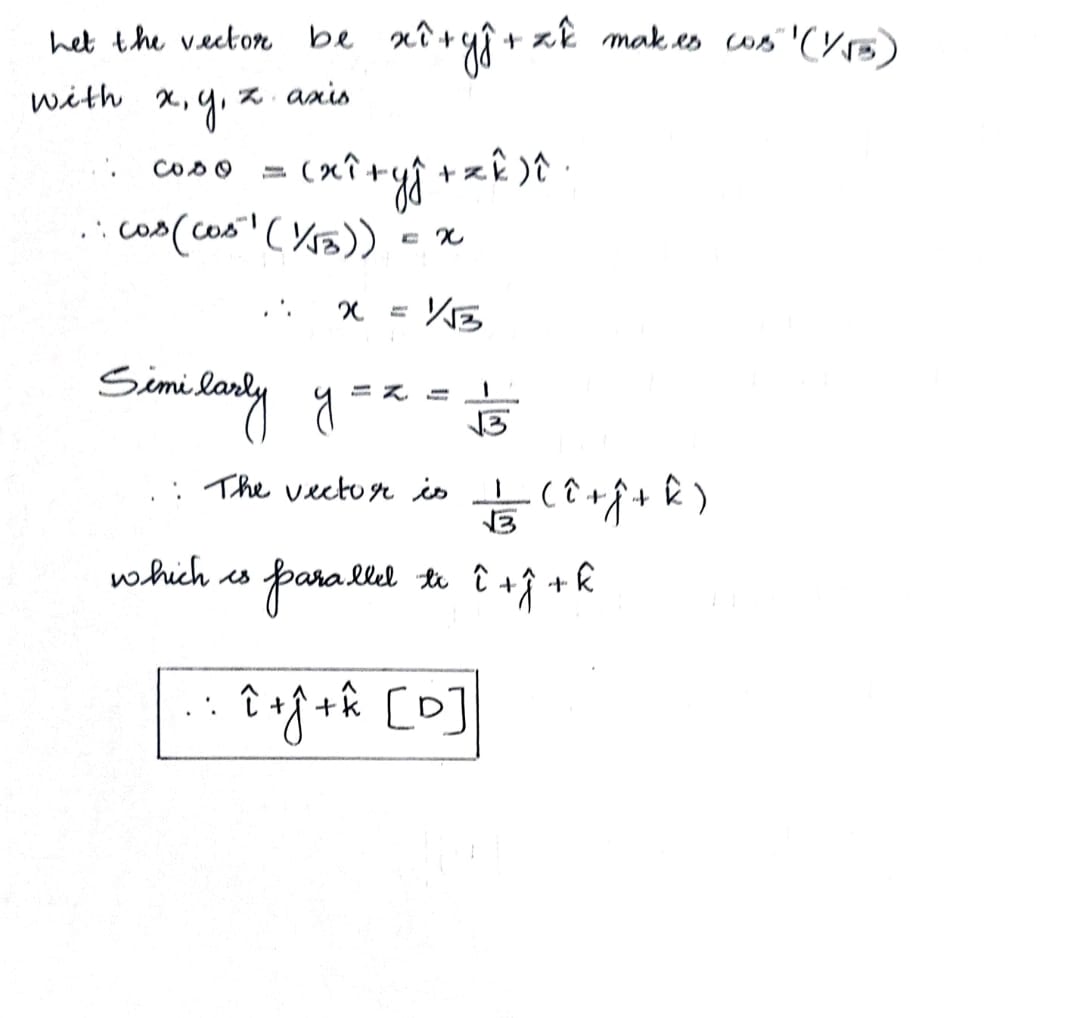 Let the vector be xî+yĵ+zk̂ makes cos⁻¹(1/√3)
with x, y, z axis
∴ cosθ = (xî+yĵ+zk̂)î.
∴ cos(cos⁻¹(1/√3)) = x
∴ x = 1/√3
Similarly y = z = 1/√3
∴ The vector is 1/√3 (î+ĵ+k̂)
which is parallel to î+ĵ+k̂
∴ î+ĵ+k̂ [D]